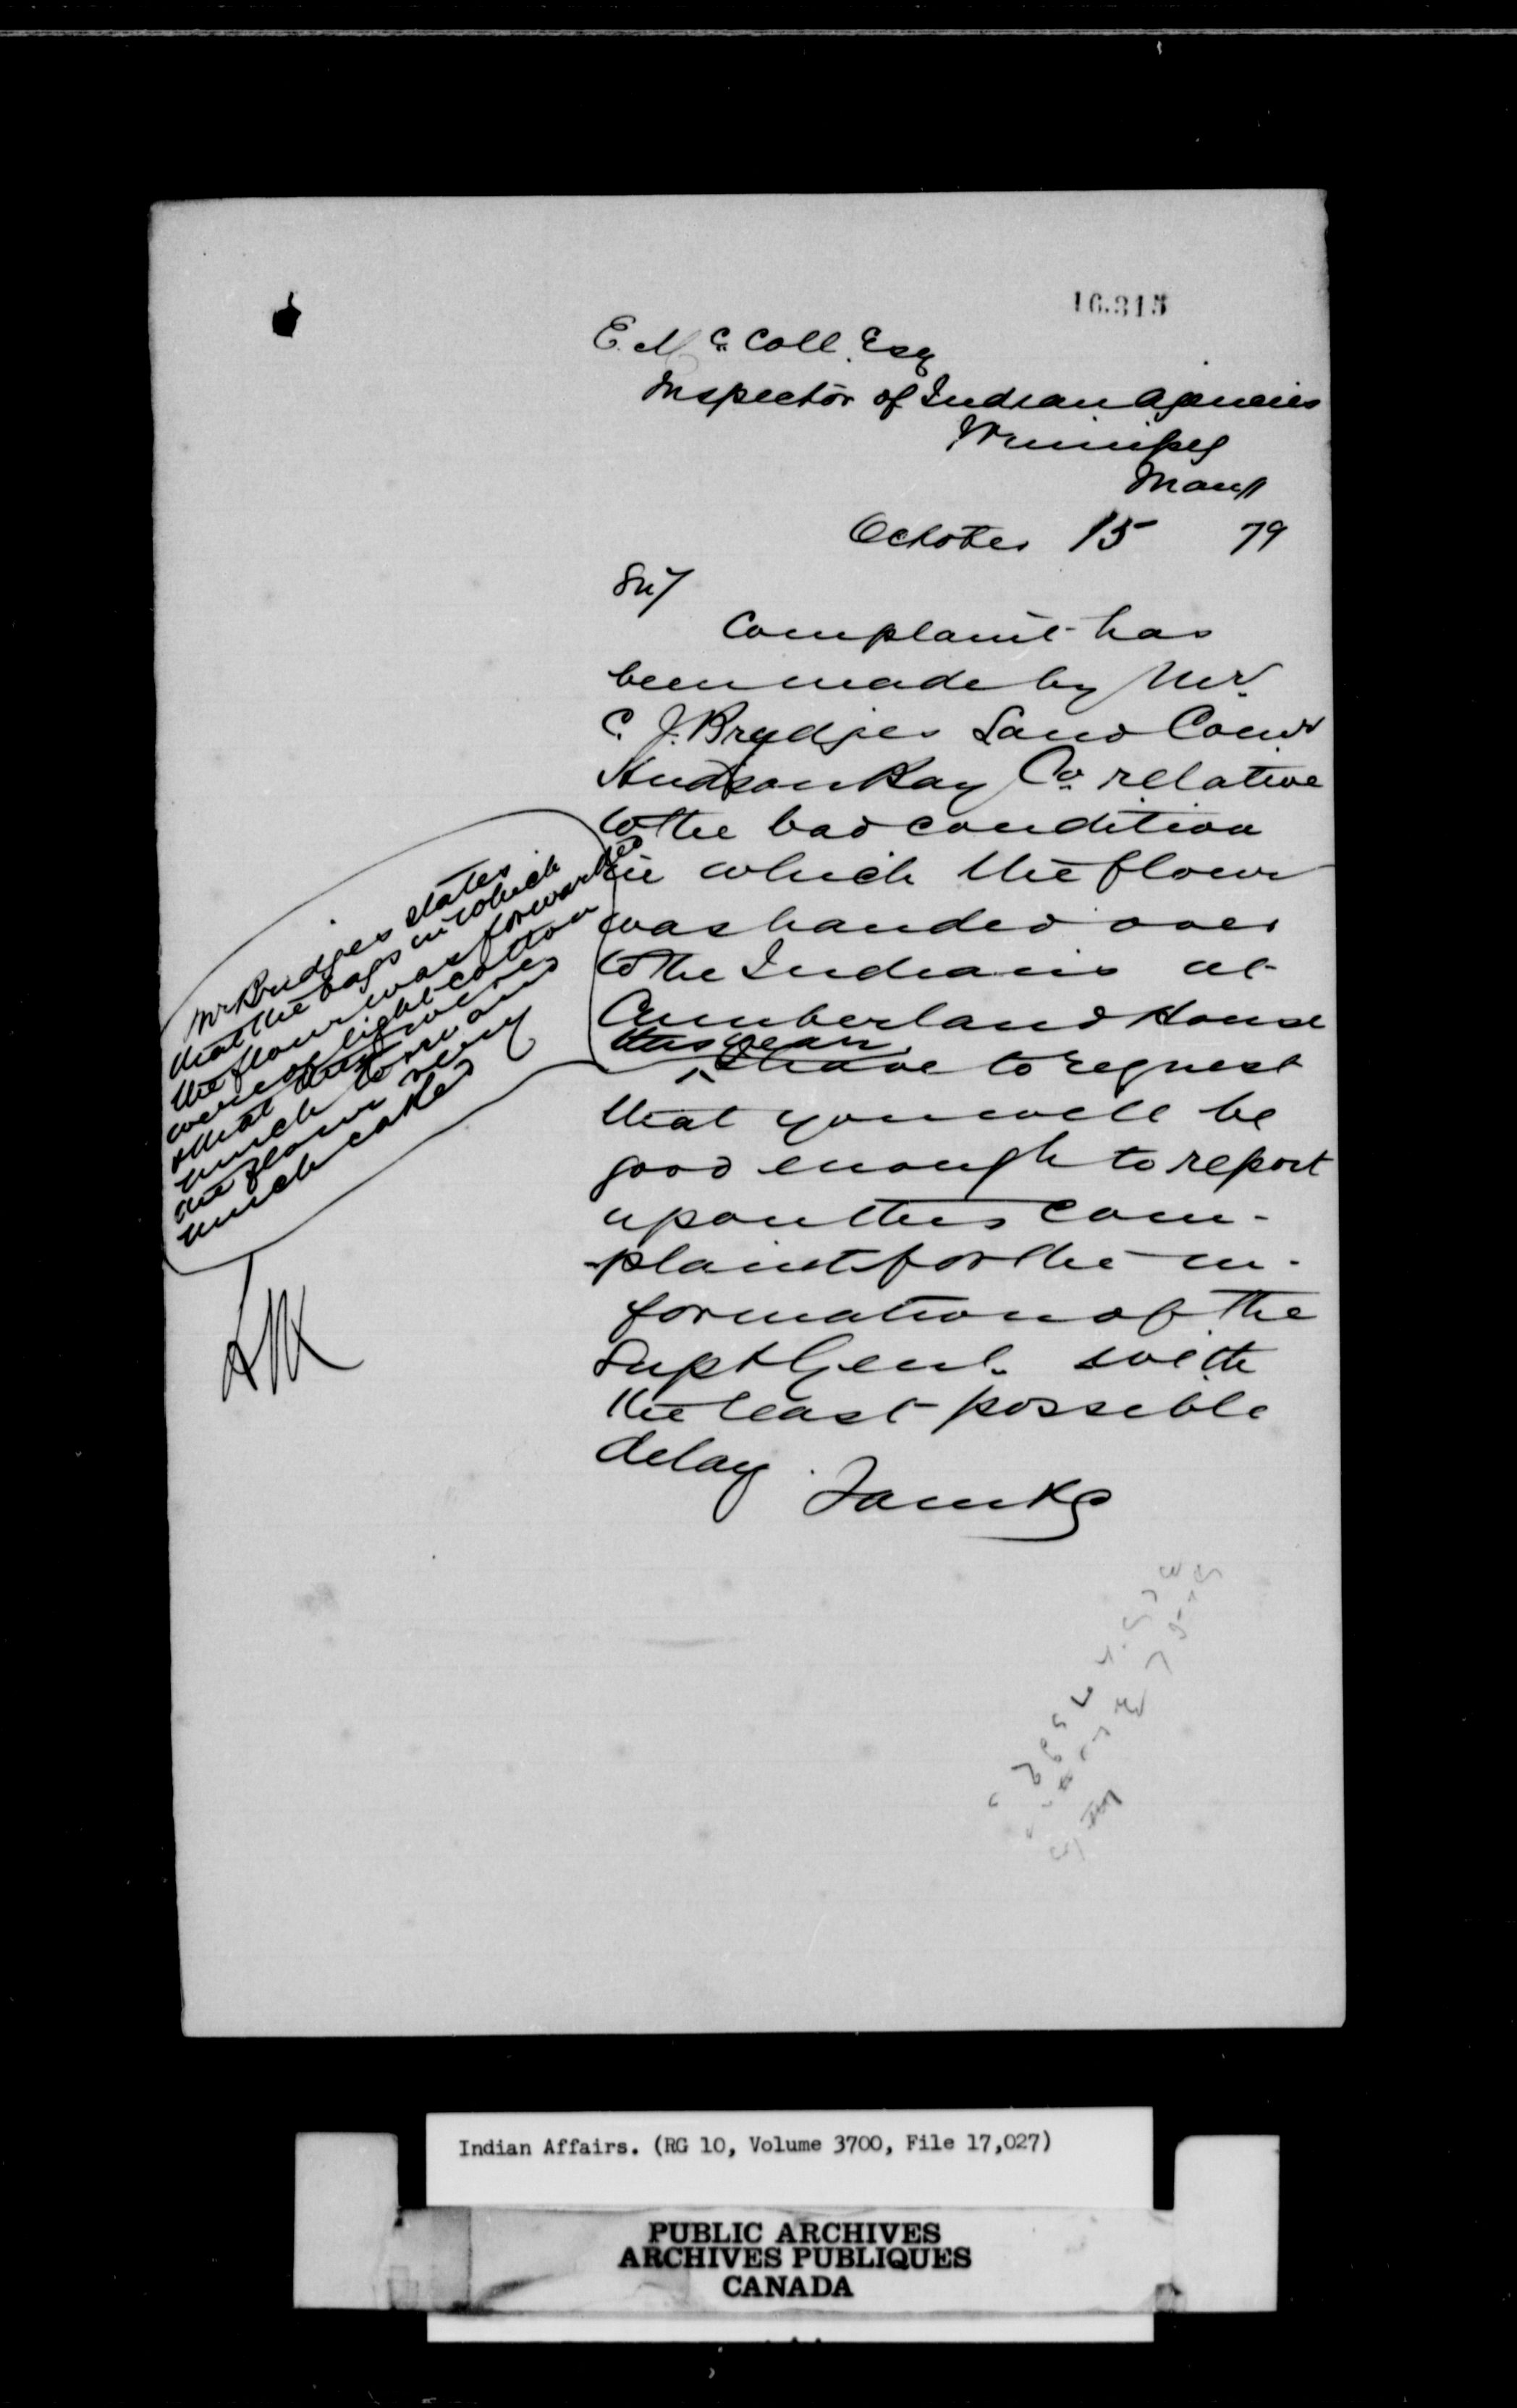 16.315
E. McColl. Esq
Inspector of Indian Agencies
Winnipeg
Man
October 15 79
Sir/
Complaint has
been made by Mr.
C. J. Brydges Land Comr
Hudson Bay Co. relative
to the bad condition
in which the flour
was handed over
to the Indians at
Cumberland House
this year.
I have to request
that you will be
good enough to report
upon this com-
-plaint for the in-
formation of the
Supt Genl. with
the least possible
delay.
Mr Brydges states
that the bags in which
the flour was forwarded
were of light cotton
& that
much
the flour very
much caked
Indian Affairs. (RG 10, Volume 3700, File 17,027)
PUBLIC ARCHIVES
ARCHIVES PUBLIQUES
CANADA